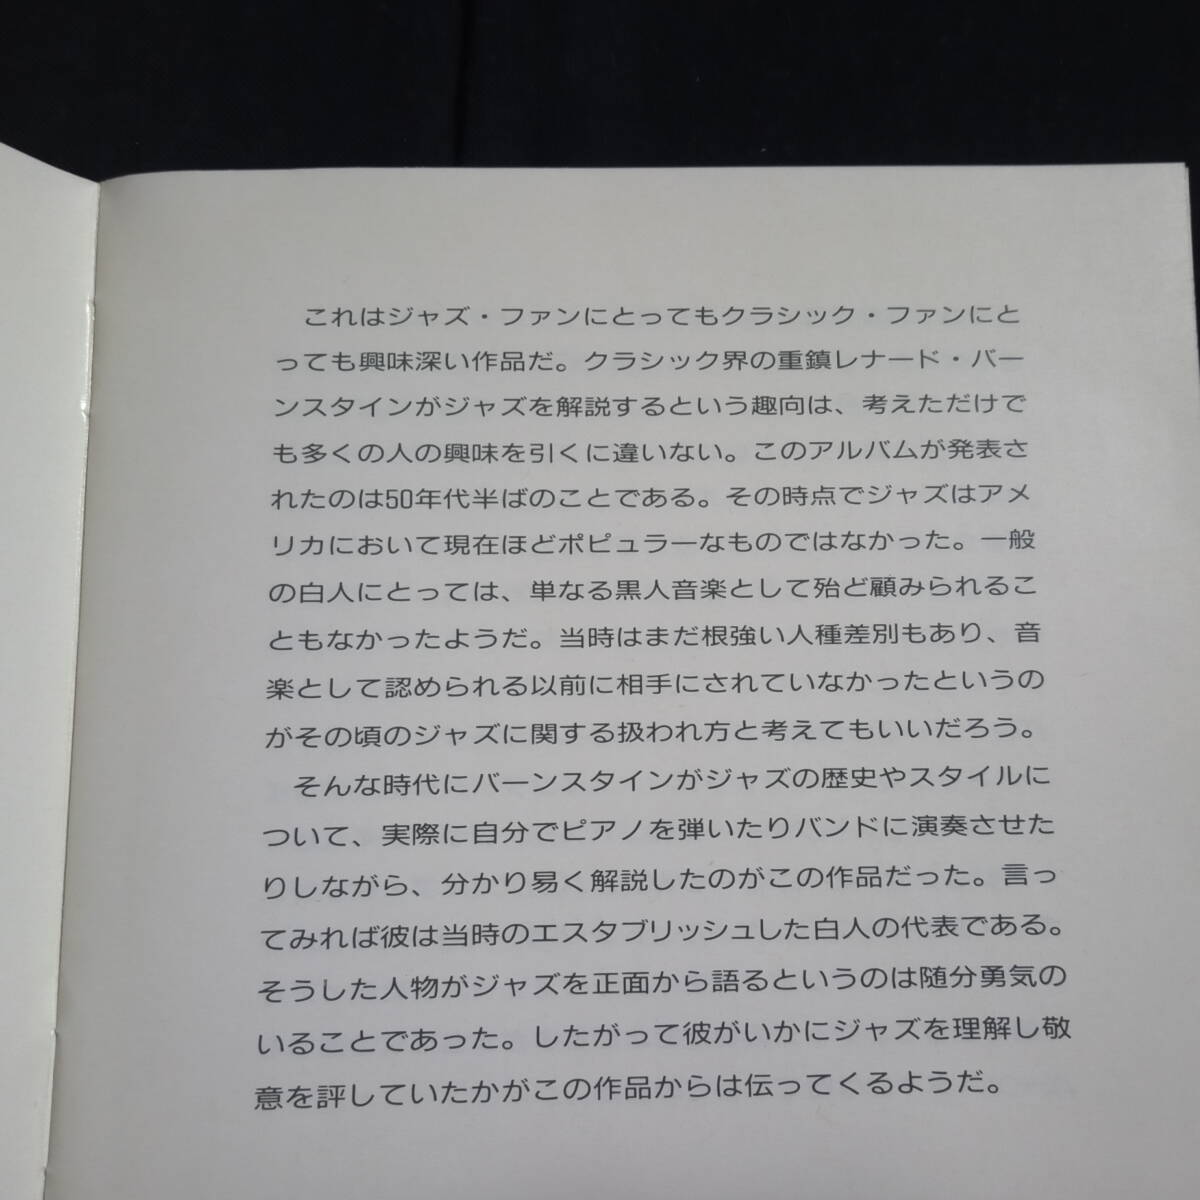 これはジャズ・ファンにとってもクラシック・ファンにと
っても興味深い作品だ。クラシック界の重鎮レナード・バー
ンスタインがジャズを解説するという趣向は、考えただけで
も多くの人の興味を引くに違いない。このアルバムが発表さ
れたのは50年代半ばのことである。その時点でジャズはアメ
リカにおいて現在ほどポピュラーなものではなかった。一般
の白人にとっては、単なる黒人音楽として殆ど顧みられるこ
ともなかったようだ。当時はまだ根強い人種差別もあり、音
楽として認められる以前に相手にされていなかったというの
がその頃のジャズに関する扱われ方と考えてもいいだろう。
そんな時代にバーンスタインがジャズの歴史やスタイルに
ついて、実際に自分でピアノを弾いたりバンドに演奏させた
りしながら、分かり易く解説したのがこの作品だった。言っ
てみれば彼は当時のエスタブリッシュした白人の代表である。
そうした人物がジャズを正面から語るというのは随分勇気の
いることであった。したがって彼がいかにジャズを理解し敬
意を評していたかがこの作品からは伝ってくるようだ。